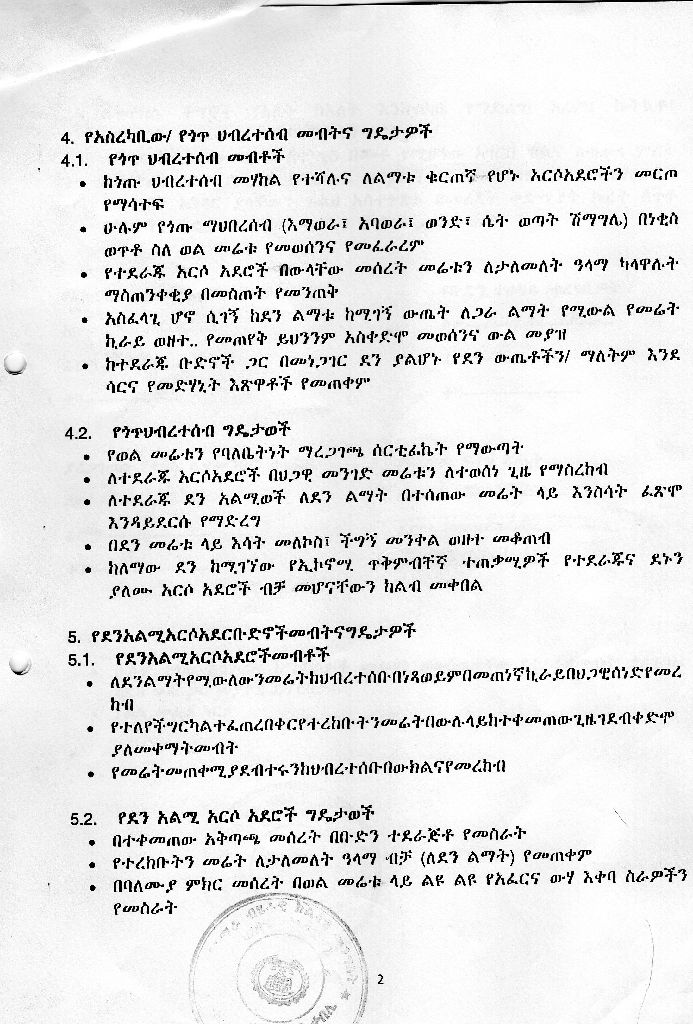 4. የአስረካቢው/ የጎጥ ህብረተሰብ መብትና ግዴታዎች
4.1. የጎጥ ህብረተሰብ መብቶች
• ከጎጡ ህብረተሰብ መሃከል የተሻሉና ለልማቱ ቁርጠኛ የሆኑ አርሶአደሮችን መርጦ
የማሳተፍ
• ሁሉም የጎጡ ማህበረሰብ (እማወራ፤ አባወራ፤ ወንድ፣ ሴት ወጣት ሽማግሌ) በነቂስ
ወጥቶ ስለ ወል መሬቱ የመወሰንና የመፈራረም
• የተደራጁ አርሶ አደሮች በውላቸው መሰረት መሬቱን ለታለመለት ዓላማ ካላዋሉት
ማስጠንቀቂያ በመስጠት የመንጠቅ
• አስፈላጊ ሆኖ ሲገኝ ከደን ልማቱ ከሚገኝ ውጤት ለጋራ ልማት የሚውል የመሬት
ኪራይ ወዘተ.. የመጠየቅ ይህንንም አስቀድሞ መወሰንና ውል መያዝ
• ከተደራጁ ቡድኖች ጋር በመነጋገር ደን ያልሆኑ የደን ውጤቶችን/ ማለትም እንደ
ሳርና የመድሃኒት እጽዋቶች የመጠቀም
4.2. የጎጥህብረተሰብ ግዴታወች
• የወል መሬቱን የባለቤትነት ማረጋገጫ ሰርቲፊኬት የማውጣት
• ለተደራጁ አርሶአደሮች በህጋዊ መንገድ መሬቱን ለተወሰነ ጊዜ የማስረከብ
• ለተደራጁ ደን አልሚወች ለደን ልማት በተሰጠው መሬት ላይ እንስሳት ፈጽሞ
እንዳይደርሱ የማድረግ
• በደን መሬቱ ላይ እሳት መለኮስ፤ ችግኝ መንቀል ወዘተ መቆጠብ
• ከለማው ደን ከሚገኘው የኢኮኖሚ ጥቅምብቸኛ ተጠቃሚዎች የተደራጁና ደኑን
ያለሙ አርሶ አደሮች ብቻ መሆናቸውን ከልብ መቀበል
5. የደንአልሚአርሶአደርቡድኖችመብትናግዴታዎች
5.1. የደንአልሚአርሶአደሮችመብቶች
• ለደንልማትየሚውለውንመሬትከህብረተሰቡበነጻወይምበመጠነኛኪራይበህጋዊሰነድየመረ
ከብ
• የተለየችግርካልተፈጠረበቀርየተረከቡትንመሬትበውሉላይከተቀመጠውጊዜገደብቀድሞ
ያለመቀማትመብት
• የመሬትመጠቀሚያደብተሩንከህብረተሰቡበውክልናየመረከብ
5.2. የደን አልሚ አርሶ አደሮች ግዴታወች
• በተቀመጠው አቅጣጫ መሰረት በቡድን ተደራጅቶ የመስራት
• የተረከቡትን መሬት ለታለመለት ዓላማ ብቻ (ለደን ልማት) የመጠቀም
• በባለሙያ ምክር መሰረት በወል መሬቱ ላይ ልዩ ልዩ የአፈርና ውሃ እቀባ ስራዎችን
የመስራት
2